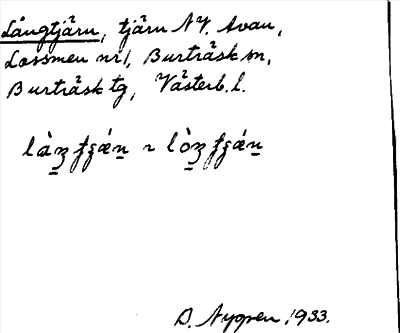 Långtjärn, tjärn NV. Avan,
Lossmen nr 1, Burträsk sn,
Burträsk tg, Västerb. l.
D. Nygren 1933.